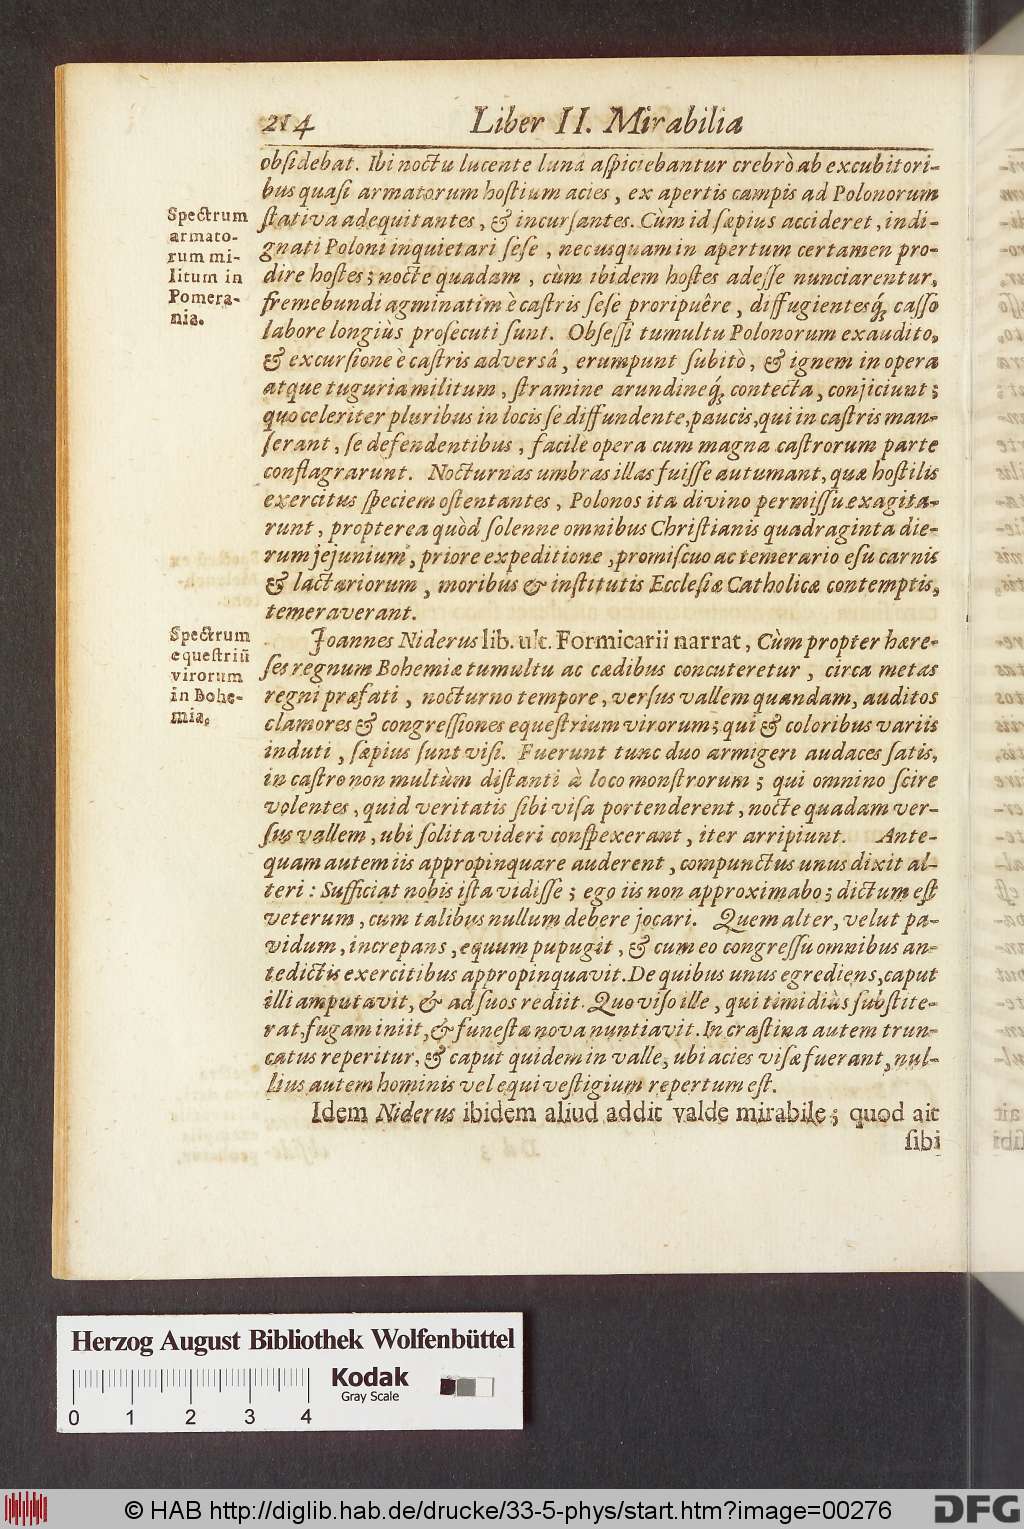 214 Liber II. Mirabilia
obſidebat. Ibi noctu lucente lunâ aſpiciebantur crebrò ab excubitori-
bus quaſi armatorum hoſtium acies, ex apertis campis ad Polonorum
ſtativa adequitantes, & incurſantes. Cùm id ſæpius accideret, indi-
gnati Poloni inquietari ſeſe, nec usquam in apertum certamen pro-
dire hoſtes; nocte quadam, cùm ibidem hoſtes adeſſe nunciarentur,
fremebundi agminatim è caſtris ſeſe proripuêre, diffugientesq́ꝫ caſſo
labore longiùs proſecuti ſunt. Obſeſſi tumultu Polonorum exaudito,
& excurſione è caſtris adversâ, erumpunt ſubitò, & ignem in opera
atque tuguria militum, ſtramine arundineq́ꝫ contecta, conjiciunt;
quo celeriter pluribus in locis ſe diffundente, paucis, qui in caſtris man-
ſerant, ſe defendentibus, facile opera cum magna caſtrorum parte
conflagrarunt. Nocturnas umbras illas fuiſſe autumant, quæ hoſtilis
exercitus ſpeciem oſtentantes, Polonos ita divino permiſſu exagita-
runt, propterea quòd ſolenne omnibus Chriſtianis quadraginta die-
rum jejunium, priore expeditione, promiſcuo ac temerario eſu carnis
& lactariorum, moribus & inſtitutis Eccleſiæ Catholicæ contemptis,
temeraverant.
Spectrum
armato-
rum mi-
litum in
Pomera-
nia.
Joannes Niderus lib. ult. Formicarii narrat, Cùm propter hære-
ſes regnum Bohemiæ tumultu ac cædibus concuteretur, circa metas
regni præfati, nocturno tempore, verſus vallem quandam, auditos
clamores & congreſſiones equeſtrium virorum; qui & coloribus variis
induti, ſæpius ſunt viſi. Fuerunt tunc duo armigeri audaces ſatis,
in caſtro non multùm diſtanti à loco monſtrorum; qui omnino ſcire
volentes, quid veritatis ſibi viſa portenderent, nocte quadam ver-
ſus vallem, ubi ſolita videri conſpexerant, iter arripiunt. Ante-
quam autem iis appropinquare auderent, compunctus unus dixit al-
teri: Sufficiat nobis iſta vidiſſe; ego iis non approximabo; dictum eſt
veterum, cum talibus nullum debere jocari. Quem alter, velut pa-
vidum, increpans, equum pupugit, & cum eo congreſſu omnibus an-
tedictis exercitibus appropinquavit. De quibus unus egrediens, caput
illi amputavit, & ad ſuos rediit. Quo viſo ille, qui timidiùs ſubſtite-
rat, fugam iniit, & funeſta nova nuntiavit. In craſtina autem trun-
catus reperitur, & caput quidem in valle, ubi acies viſæ fuerant, nul-
lius autem hominis vel equi veſtigium repertum eſt.
Spectrum
equeſtriũ
virorum
in Bohe-
mia.
Idem Niderus ibidem aliud addit valde mirabile; quod ait
ſibi
Herzog August Bibliothek Wolfenbüttel
Kodak
Gray Scale
0 1 2 3 4
© HAB http://diglib.hab.de/drucke/33-5-phys/start.htm?image=00276
DFG